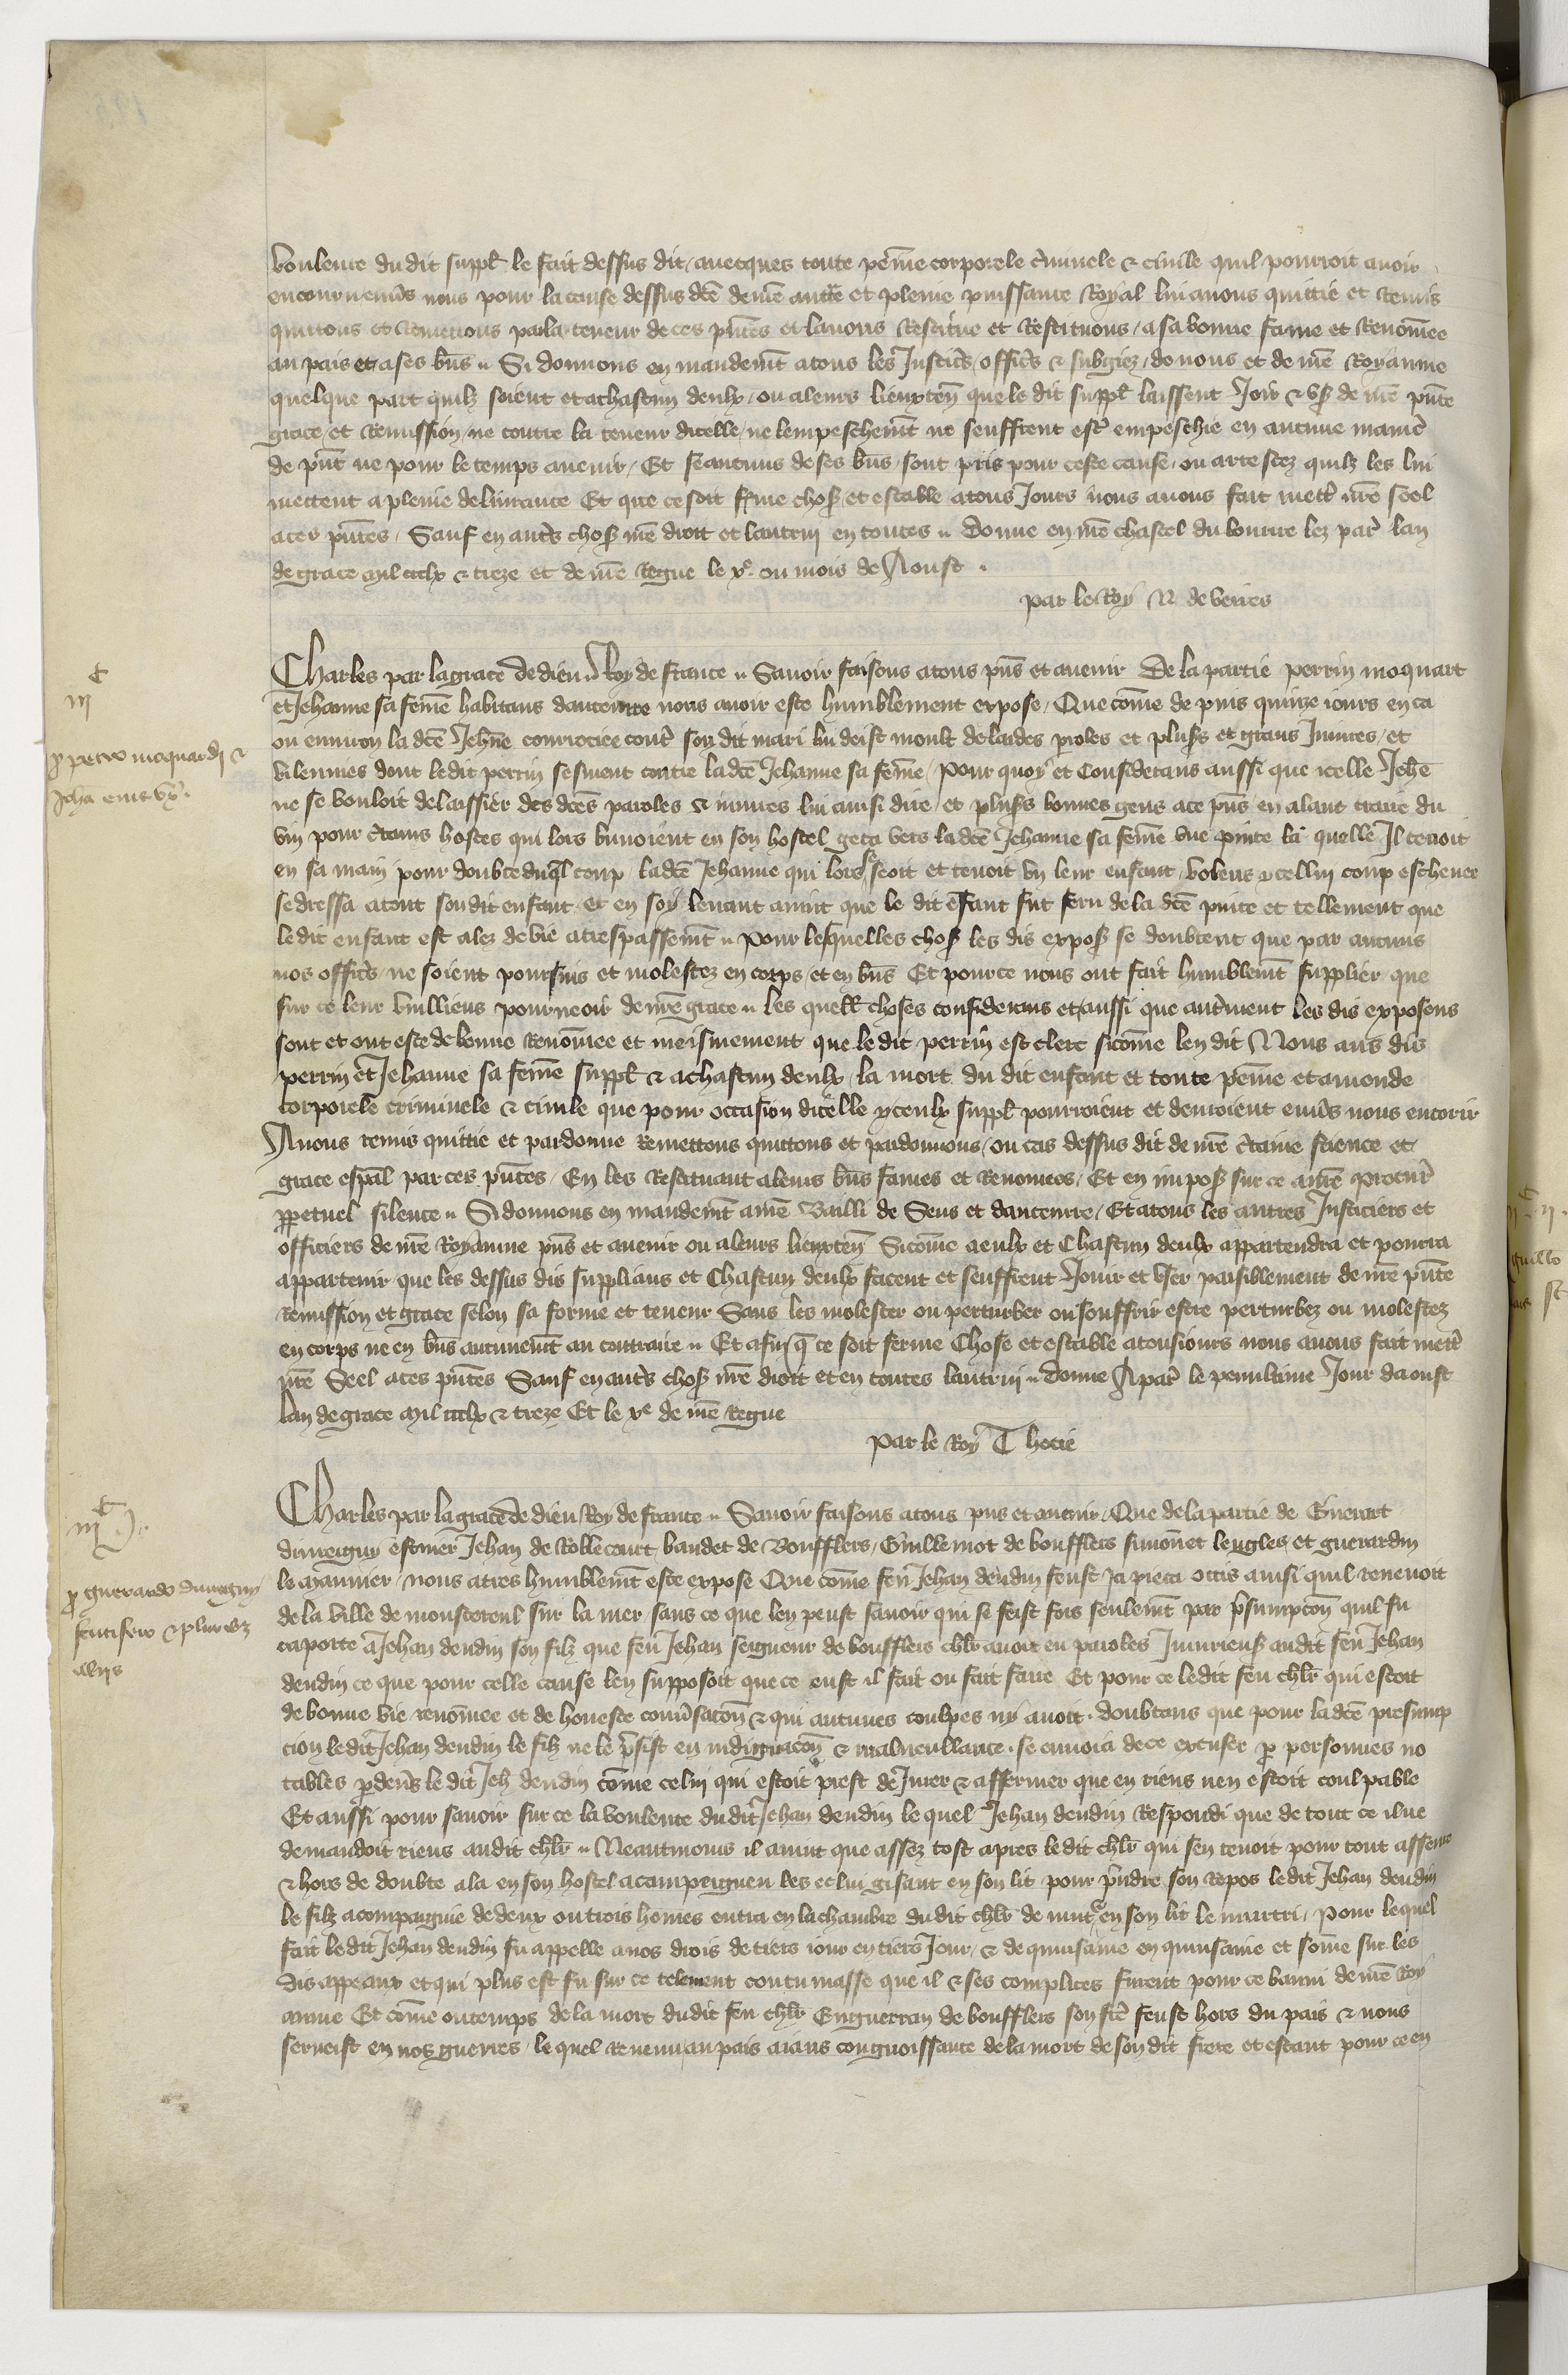 voulente du dit suppl̃ le fait dessus dit / avecques toute peine corporele c̃iminele & civile quil pourroit avoir
encouru enũs nous pour la cause dessus dc̃e de nr̃e auct̃e et pleine puissance Royal lui avons quittie et Remis
quittons et Remettons par la teneur de ces pñtes et lavons Restitue et Restituons / a sa bonne fame et Renõmee
au pais et a ses bñs ~ Si donnons en mandem̃t a tous les Justic̃s / offic̃s & subgiez / de nous et de nr̃e Royaume
quelque part quilz soient et a chascun deulx / ou a leurs lieuxteñ que le dit suppl̃ laissent Joir & usr̃ de nr̃e pñte
grace / et Remission / ne contre la teneur dicelle / ne lempeschem̃t ne seuffrent estr̃ empeschie en aucune manier̃
de pñt ne pour le temps avenir / Et se aucuns de ses bñs / sont pris pour ceste cause / ou arrestez quilz les lui
mettent a pleine delivrance Et que ce soit ferme chos̃ et estable a tous Jours nous avons fait mettr̃ nr̃e seel
a ces pñtes / Sauf en autr̃s chos̃ nr̃e droit et lautrui en toutes ~ Donne en nr̃e chastel du louvre lez par̃ lan
de grace mil ccclx & treze et de nr̃e Regne le xe. ou mois de Aoust .
par le Roy N de veires
Charles par la grace de dieu Roy de france ~ Savoir faisons a tous pñs et avenir De la partie perrin moquart
et Jehanne sa fem̃e habitans daucenrre nous avoir este humblement expose / Que com̃e de puis quinze iours en ca
ou environ la dc̃e Jehñe courrociee contr̃ son dit mari lui deist moult de laides paroles et plus̃s et grans Iniures / et
vilennies dont le dit perrin sesment contre la dc̃e Jehanne sa fem̃e / Pour quoy et Considerans aussi que icelle Jeh̃e
ne se vouloit delaissier des dc̃es paroles & iniures lui ainsi dire / et plus̃s bonnes gens a ce pñs en alant traire du
vin pour c̃tains hostes qui lors buvoient en son hostel geta vers la dc̃e Jehanne sa fem̃e une pinte la quelle Il tenoit
en sa main pour doubte duq̃l coup / la dc̃e Jehanne qui lors se seoit et tenoit un leur enfant / volens ycellui coup eschever
se dressa a tout son dit enfant / et en soy levant avint que le dit ẽfant fut feru de la dc̃e pinte et tellement que
le dit enfant est alez de vie a trespassem̃t ~ Pour lesquelles chos̃ les dis expos̃ se doubtent que par aucuns
nos offic̃s ne soient poursuis et molestez en corps / et en bñs Et pour ce nous ont fait humblem̃t supplier / que
sur ce leur vuilliens pourveoir de nr̃e grace ~ les quelz̃ choses considerans et aussi que autr̃ment les dis exposens
sont et ont este de bonne Renõmee et meismement que le dit perrin est clerc sicom̃e len dit Nous aus dis
perrin et Jehanne sa fem̃e suppl̃ & a chascun deulx / la mort du dit enfant et toute peine et amende
corporele criminele & civile que pour occasion dicelle yceulx suppl̃ pourroient et devroient enũs nous encorir
Avons remis quittie et pardonne Remettons quittons et pardonnons / ou cas dessus dit de nr̃e c̃taine science et
grace esp̃al par ces pñtes / En les Restituant a leurs bñs fames et Renomees / Et en impos̃ sur ce a nr̃e Procur̃
p̱petuel silence ~ Si donnons en mandem̃t a nr̃e Bailli de Sens et daucenrre / Et a tous les autres Justiciers et
officiers de nr̃e Royaume pñs et avenir ou a leurs lieuxteñ Sicom̃e a eulx et Chascun deulx appartendra et pourra
appartenir que les dessus dis supplians et Chascun deulx facent et seuffrent Jouir et user paisiblement de nr̃e pñte
Remission et grace selon sa forme et teneur Sans les molester ou perturber ou souffrir estre perturbez ou molestez
en corps ne en bñs aucunem̃t au contraire ~ Et afin q̃ ce soit ferme Chose et estable a tousiours nous avons fait mettr̃
nr̃e Seel a ces pñtes Sauf en autr̃s chos̃ nr̃e droit et en toutes lautrui ~ Donne A par̃ le penultime Jour daoust
lan de grace mil ccclx & treze Et le xe de nr̃e Regne
Par le Roy T hocie
Charles par la grace de dieu Roy de france ~ Savoir faisons a tous pñs et avenir / Que de la partie de Guerart
dinreigny escuier Jehan de Rollecourt / baudet de Boufflers / Guillemot de boufflers simonnet leugles et guerardin
le maunier / nous a tres humblem̃t este expose Que com̃e feu Jehan dendin feust ja pieca occis ainsi quil revenoit
de la ville de monstereul sur la mer sans ce que len peust savoir qui se feist fors seulem̃t par p̃sumpcoñ quil fu
raporte a Jehan dendin son filz que feu Jehan seigneur de boufflers chlr̃ avoit eu paroles Iniurieus̃ au dit feu Jehan
dendin ce que pour celle cause len supposoit que ce eust il fait ou fait faire Et pour ce le dit feu chlr̃ qui estoit
de bonne vie renõmee et de honeste conũsacoñ & qui aucunes coulpes ny avoit / doubtans que pour la dc̃e presump
cion le dit Jehan dendin le filz ne le p̃sist en indignacoñ & malveullance / se envoia de ce excuser p̱ personnes no
tables p̱deũs le dit Jeh̃ dendin com̃e celui qui estoit prest de Jurer & affermer que en riens nen estoit coulpable
Et aussi pour savoir sur ce la voulente du dit Jehan dendin le quel Jehan dendin Respondi que de tout ce il ne
demandoit riens au dit chlr̃ ~ Neantmoins il avint que assez tost apres le dit chlr̃ qui sen tenoit pour tout asseure
& hors de doubte ala en son hostel a campeigneulles et lui gisant en son lit pour p̃ndre son Repos le dit Jehan dendin
le filz acompaignie de deux ou trois hom̃es entra en la chambre du dit chlr̃ de nuit & en son lit le murtri / Pour lequel
fait le dit Jehan dendin fu appelle a nos drois de tiers iour en tiers Jour / & de quinsaine en quinsaine et som̃e sur les
dis appeaux et qui plus est fu sur ce telement contumasse que il & ses complices furent pour ce banni de nr̃e Roy
aume Et com̃e ou temps de la mort du dit feu chlr̃ Enguerran de boufflers son frr̃e feust hors du pais & nous
serveist en nos guerres / le quel Revenu au pais aians congnoissance de la mort de son dit frere et estant pour ce en
p̱ petro moquardj &
Jcha eius ux̃.
p̱ guerardo dinreigny
scutifero & plurib̃z
aliis